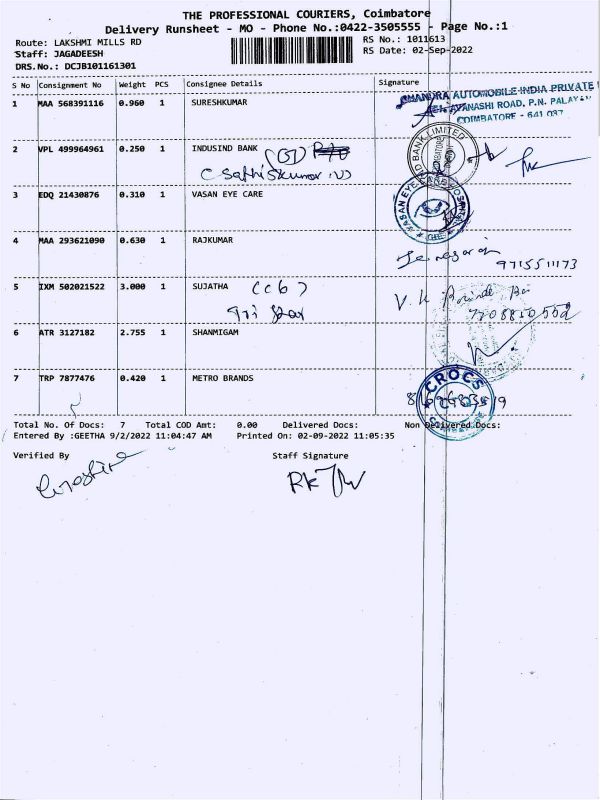 THE PROFESSIONAL COURIERS, Coimbatore
Delivery Runsheet - MO - Phone No.:0422-3505555 - Page No.:1
Route: LAKSHMI MILLS RD RS No.: 1011613
Staff: JAGADEESH RS Date: 02-Sep-2022
DRS.No.: DCJB101161301
S No Consignment No Weight PCS Consignee Details Signature
1 MAA 568391116 0.960 1 SURESHKUMAR
AUTOMOBILE INDIA PRIVATE
AVANASHI ROAD, P.N. PALAYAM
COIMBATORE - 641 037
2 VPL 499964961 0.250 1 INDUSIND BANK
BANK LIMITED
C Sathiskumar
3 EDQ 21430876 0.310 1 VASAN EYE CARE
VASAN EYE CARE HOSPITAL
4 MAA 293621090 0.630 1 RAJKUMAR
9715511173
5 IXM 502021522 3.000 1 SUJATHA
V. K
6 ATR 3127182 2.755 1 SHANMIGAM
7 TRP 7877476 0.420 1 METRO BRANDS
CROCS
Total No. Of Docs: 7 Total COD Amt: 0.00 Delivered Docs: Non Delivered Docs:
Entered By :GEETHA 9/2/2022 11:04:47 AM Printed On: 02-09-2022 11:05:35
Verified By Staff Signature